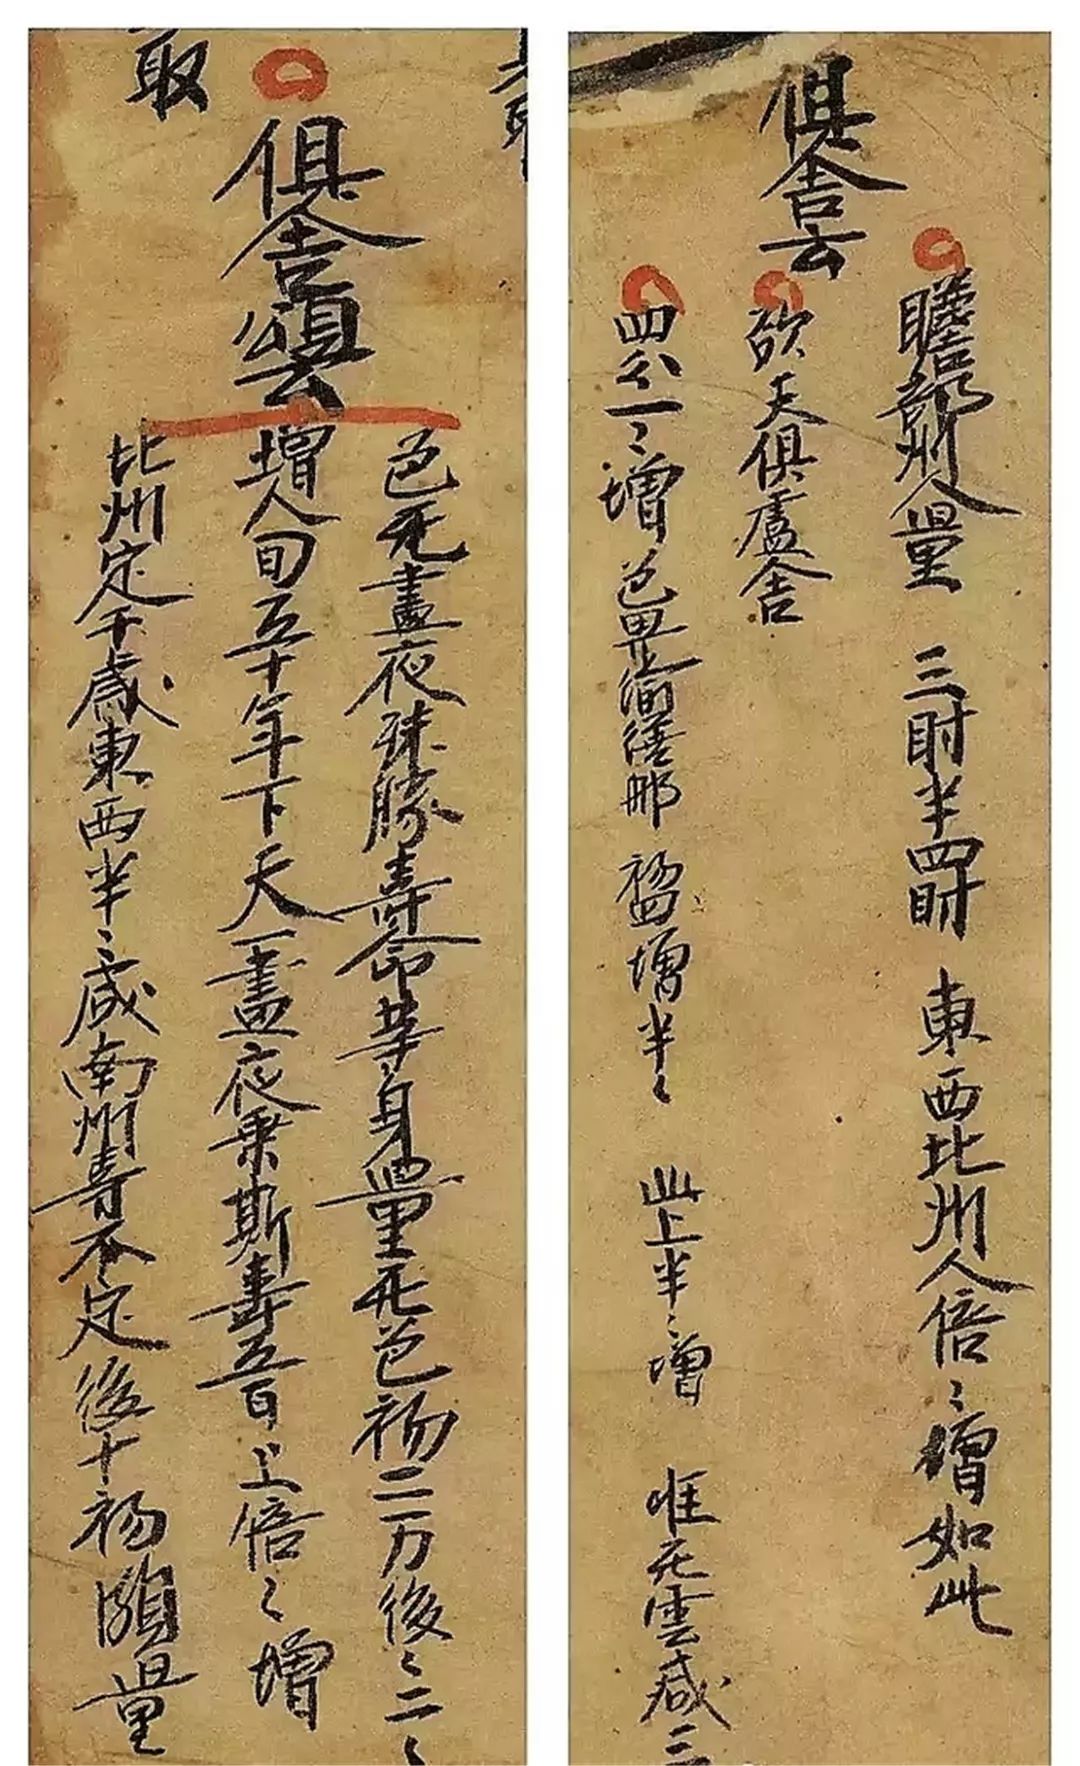 俱舍云
瞻部州人量 三肘半四肘 東西比州人倍〻增如此
欲天俱盧舍
四分一〻增 色界上踰繕那 初四增半〻 此上半〻增 唯无雲減三
俱舍頌云
色无晝夜殊勝壽命等身量无色初二万後〻二〻
增人間五十年下天一晝夜乘斯壽五百上倍〻增
比州定千歲東西半〻減南州壽不定後十初頗量
取